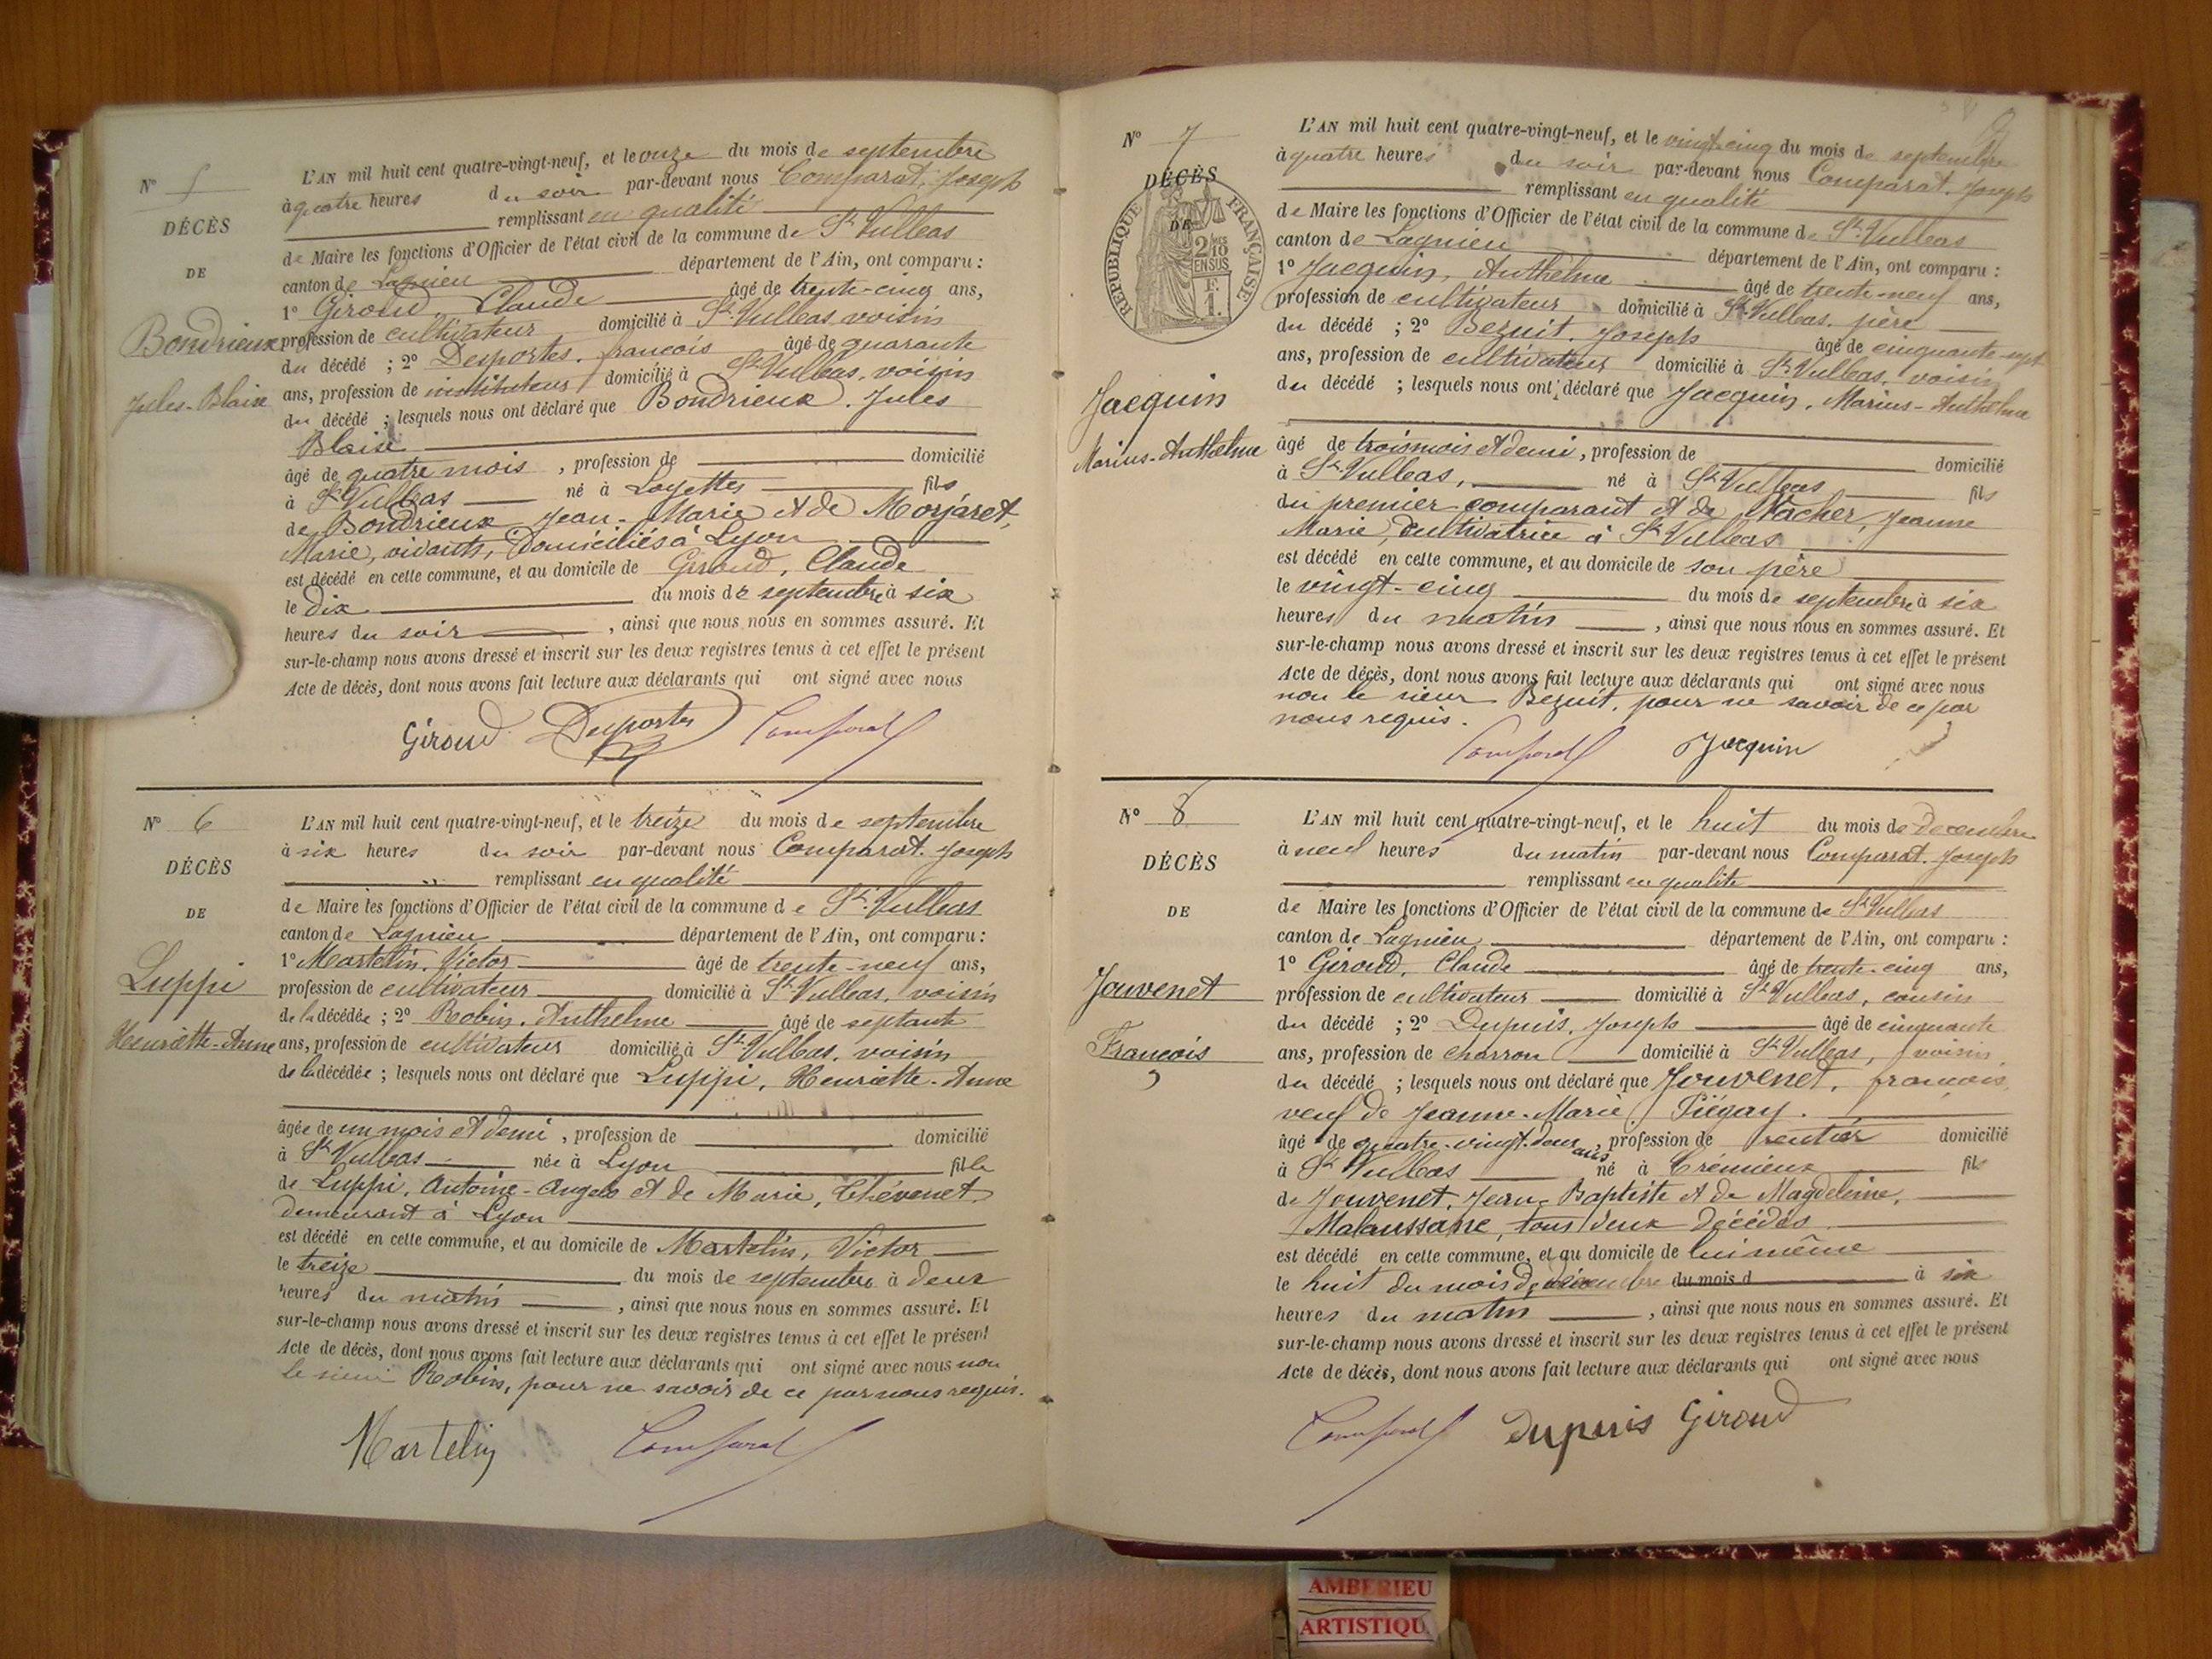 N° 5
DÉCÈS
DE
Bondrieux
Jules-Blaise
L'AN mil huit cent quatre-vingt-neuf, et le onze du mois de septembre
à quatre heures du soir par-devant nous Comparat, Joseph
remplissant en qualité
de Maire les fonctions d'Officier de l'état civil de la commune de St Vulbas
canton de Lagnieu département de l'Ain, ont comparu :
1° Giroud Claude âgé de trente-cinq ans,
profession de cultivateur domicilié à St Vulbas voisin
du décédé ; 2° Desportes, françois âgé de quarante
ans, profession de instituteur domicilié à St Vulbas, voisin
du décédé ; lesquels nous ont déclaré que Bondrieux, Jules
Blaise
âgé de quatre mois, profession de domicilié
à St Vulbas né à Loyettes fils
de Bondrieux Jean-Marie et de Morjaret,
Marie, vivants, domiciliés à Lyon
est décédé en cette commune, et au domicile de Giroud, Claude
le dix du mois de septembre à six
heures du soir, ainsi que nous nous en sommes assuré. Et
sur-le-champ nous avons dressé et inscrit sur les deux registres tenus à cet effet le présent
Acte de décès, dont nous avons fait lecture aux déclarants qui ont signé avec nous
Giroud Desportes Comparat
N° 6
DÉCÈS
DE
Luppi
Henriette-Anne
L'AN mil huit cent quatre-vingt-neuf, et le treize du mois de septembre
à six heures du soir par-devant nous Comparat. Joseph
remplissant en qualité
de Maire les fonctions d'Officier de l'état civil de la commune de St. Vulbas
canton de Lagnieu département de l'Ain, ont comparu :
1° Martelin, Victor âgé de trente-neuf ans,
profession de cultivateur domicilié à St Vulbas, voisin
de la décédée ; 2° Robin, Anthelme âgé de septante
ans, profession de cultivateur domicilié à St Vulbas, voisin
de la décédée ; lesquels nous ont déclaré que Luppi, Henriette-Anne
âgée de un mois et demi, profession de domicilié
à St Vulbas née à Lyon fille
de Luppi, Antoine-Angelo et de Marie, Thévenet,
demeurant à Lyon
est décédé en cette commune, et au domicile de Martelin, Victor
le treize du mois de septembre à deux
heures du matin, ainsi que nous nous en sommes assuré. Et
sur-le-champ nous avons dressé et inscrit sur les deux registres tenus à cet effet le présent
Acte de décès, dont nous avons fait lecture aux déclarants qui ont signé avec nous non
le sieur Robin, pour ne savoir de ce par nous requis.
Martelin Comparat
N° 7
DÉCÈS
DE
RÉPUBLIQUE FRANÇAISE
2/10 EN SUS
F. 1.
Jacquin
Marius-Anthelme
L'AN mil huit cent quatre-vingt-neuf, et le vingt-cinq du mois de septembre
à quatre heures du soir par-devant nous Comparat. Joseph
remplissant en qualité
de Maire les fonctions d'Officier de l'état civil de la commune de St. Vulbas
canton de Lagnieu département de l'Ain, ont comparu :
1° Jacquin, Anthelme âgé de trente-neuf ans,
profession de cultivateur domicilié à St Vulbas. père
du décédé ; 2° Bezuit. Joseph âgé de cinquante-sept
ans, profession de cultivateur domicilié à St Vulbas, voisin
du décédé ; lesquels nous ont déclaré que Jacquin, Marius-Anthelme
âgé de trois mois et demi, profession de domicilié
à St Vulbas, né à St Vulbas fils
du premier comparant et de Macher, Jeanne
Marie, cultivatrice à St Vulbas
est décédé en cette commune, et au domicile de son père
le vingt-cinq du mois de septembre à six
heures du matin, ainsi que nous nous en sommes assuré. Et
sur-le-champ nous avons dressé et inscrit sur les deux registres tenus à cet effet le présent
Acte de décès, dont nous avons fait lecture aux déclarants qui ont signé avec nous
non le sieur Bezuit, pour ne savoir de ce par
nous requis.
Comparat Jacquin
N° 8
DÉCÈS
DE
Jouvenet
François
L'AN mil huit cent quatre-vingt-neuf, et le huit du mois de decembre
à neuf heures du matin par-devant nous Comparat. Joseph
remplissant en qualite
de Maire les fonctions d'Officier de l'état civil de la commune de St Vulbas
canton de Lagnieu département de l'Ain, ont comparu :
1° Giroud, Claude âgé de trente-cinq ans,
profession de cultivateur domicilié à St Vulbas, cousin
du décédé ; 2° Dupuis, Joseph âgé de cinquante
ans, profession de charron domicilié à St Vulbas, voisin
du décédé ; lesquels nous ont déclaré que Jouvenet, françois,
veuf de Jeanne-Marie Piégay.
âgé de quatre-vingt-deux ans, profession de rentier domicilié
à St Vulbas né à Crémieux fils
de Jouvenet, Jean-Baptiste et de Magdeleine,
Malaussane, tous deux décédés
est décédé en cette commune, et au domicile de lui même
le huit du mois de décembre du mois d à six
heures du matin, ainsi que nous nous en sommes assuré. Et
sur-le-champ nous avons dressé et inscrit sur les deux registres tenus à cet effet le présent
Acte de décès, dont nous avons fait lecture aux déclarants qui ont signé avec nous
Comparat Dupuis Giroud
AMBERIEU
ARTISTIQU